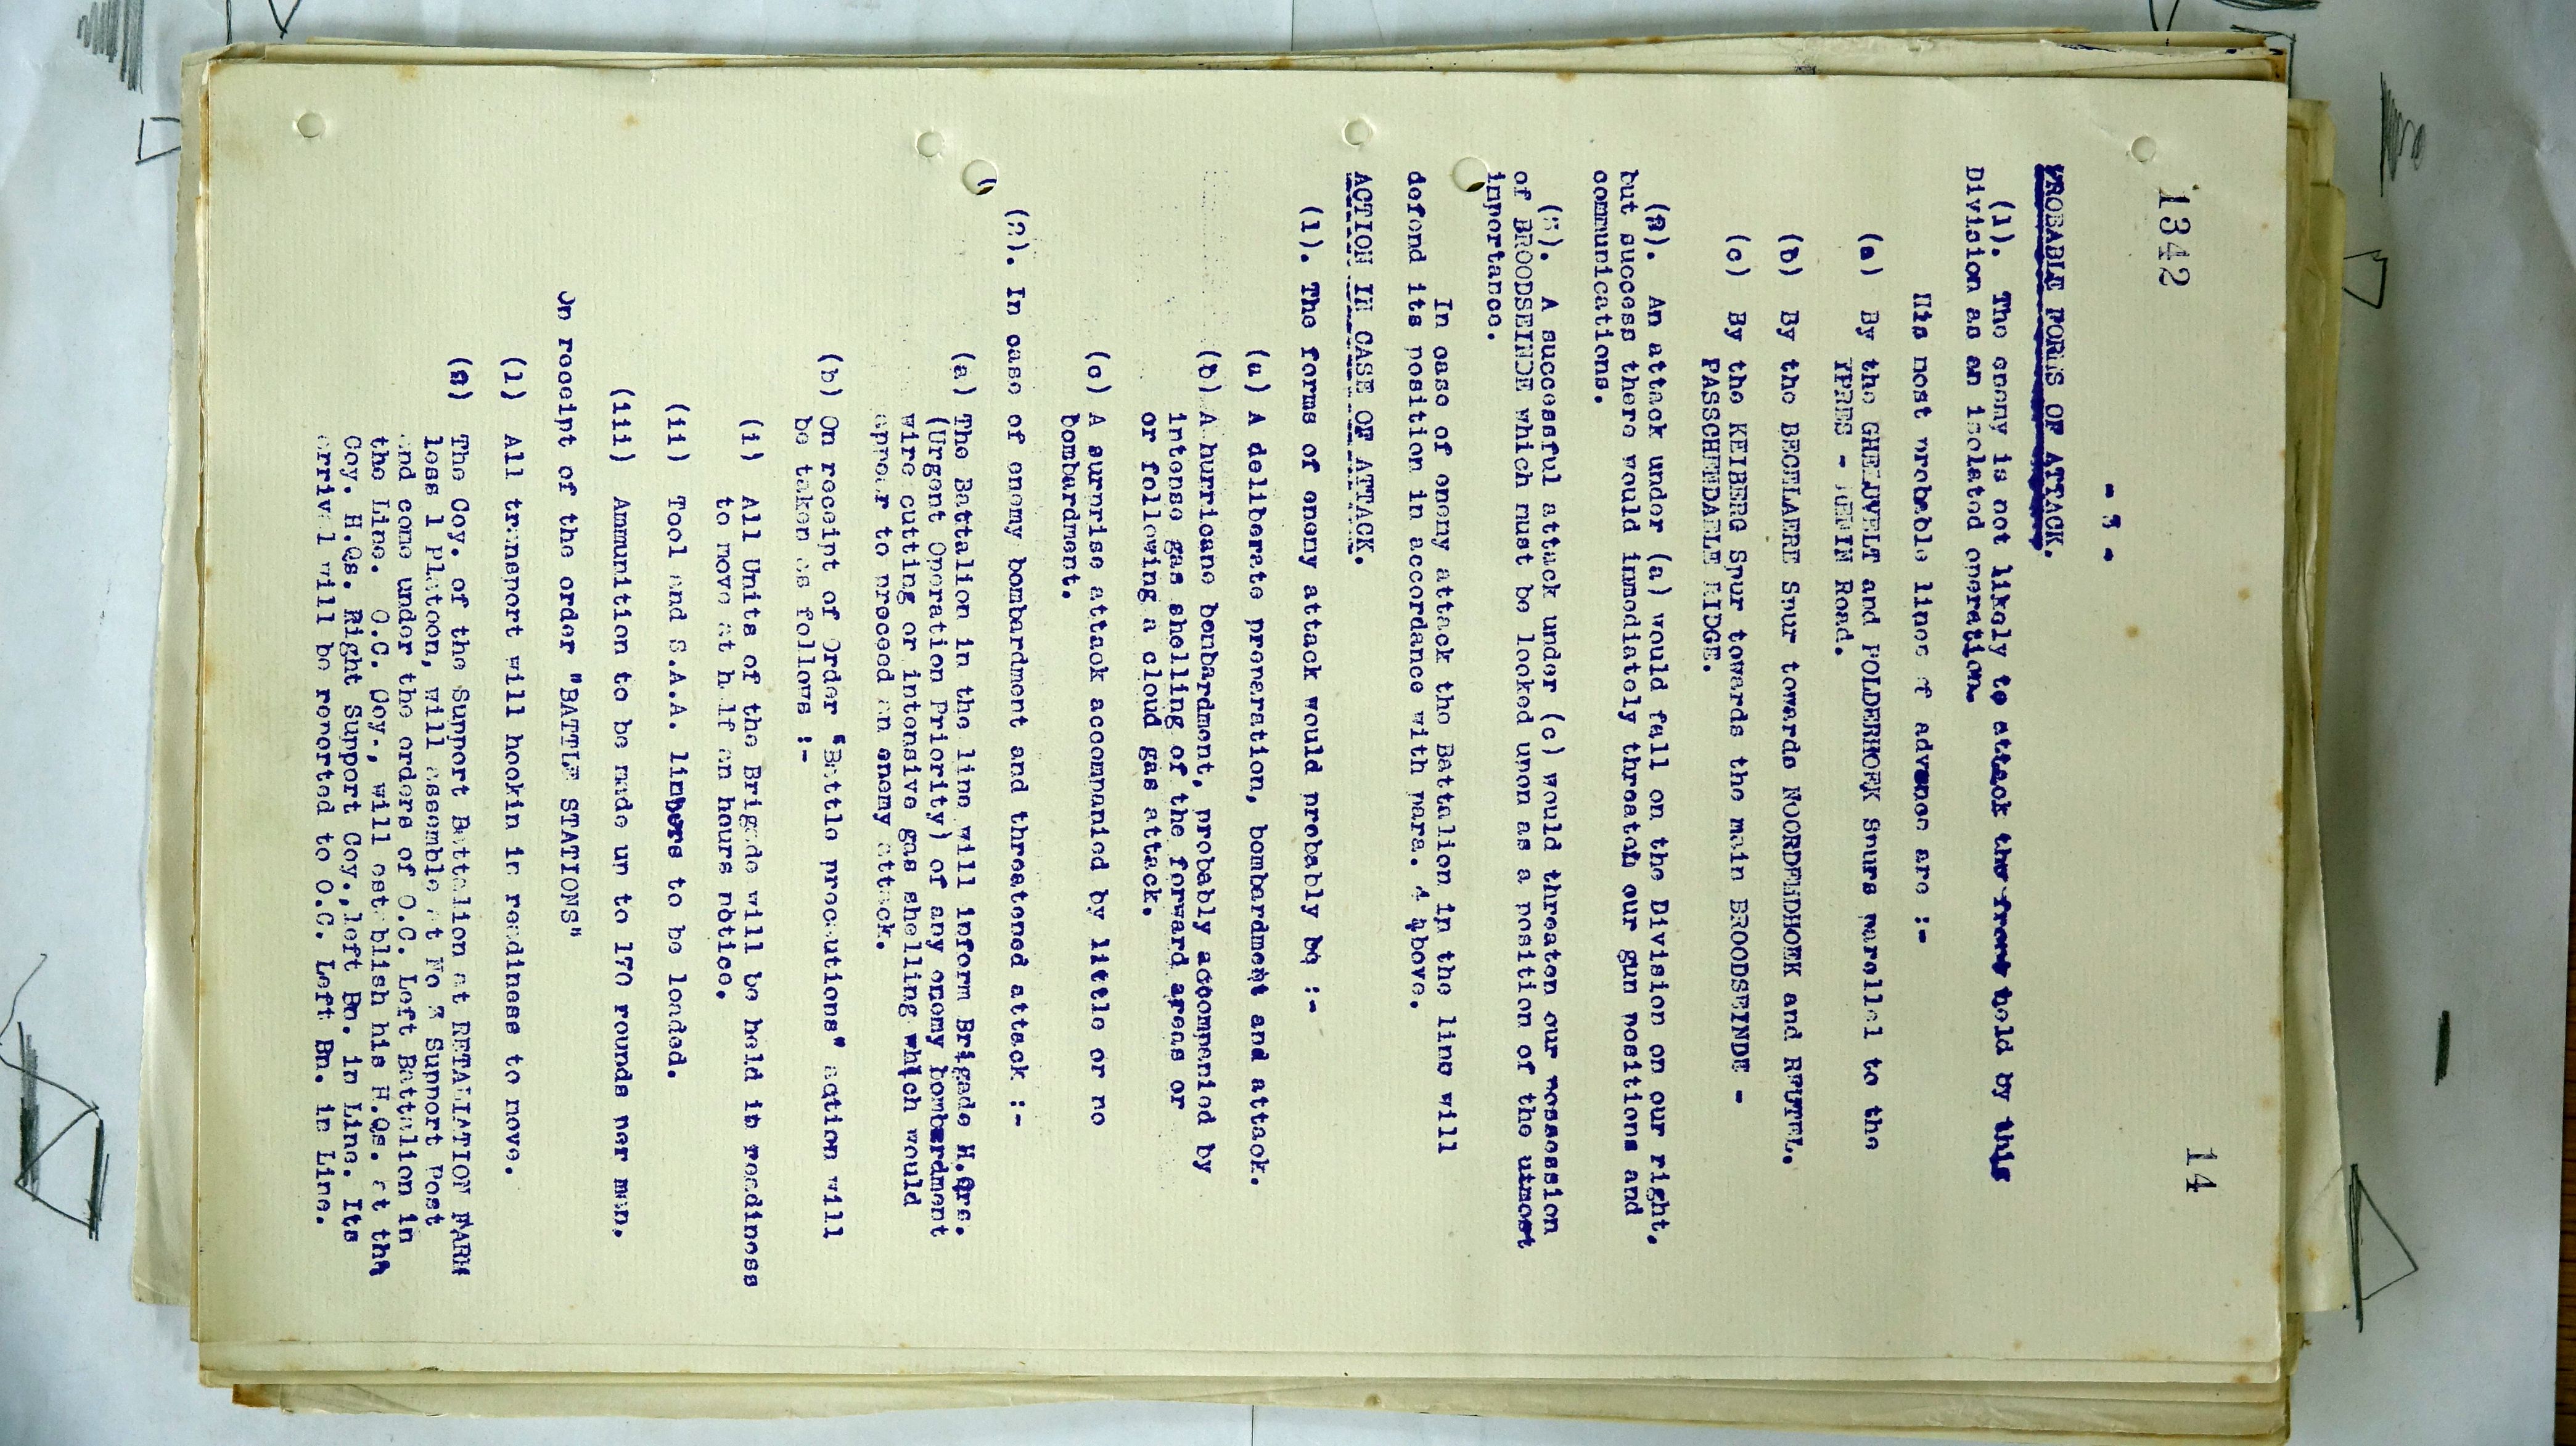 1342
14
- 3 -
PROBABLE FORMS OF ATTACK.
(1). The enemy is not likely to attack the front held by this
Division as an isolated operation.
His most probable lines of advance are :-
(a) By the GHELUVELT and POLDERHOEK Spurs parallel to the
YPRES - MENIN Road.
(b) By the BECELAERE Spur towards NOORDEMDHOEK and REUTEL.
(c) By the KEIBERG Spur towards the main BROODSEINDE -
PASSCHENDAELE RIDGE.
(2). An attack under (a) would fall on the Division on our right,
but success there would immediately threaten our gun positions and
communications.
(3). A successful attack under (c) would threaten our possession
of BROODSEINDE which must be looked upon as a position of the utmost
importance.
In case of enemy attack the Battalion in the line will
defend its position in accordance with para. 4 above.
ACTION IN CASE OF ATTACK.
(1). The forms of enemy attack would probably be :-
(a) A deliberate preparation, bombardment and attack.
(b) A hurricane bombardment, probably accompanied by
intense gas shelling of the forward areas or
or following a cloud gas attack.
(c) A surprise attack accompanied by little or no
bombardment.
(2). In case of enemy bombardment and threatened attack :-
(a) The Battalion in the line will inform Brigade H.Qrs.
(Urgent Operation Priority) of any enemy bombardment
wire cutting or intensive gas shelling which would
appear to preceed an enemy attack.
(b) On receipt of Order "Battle precautions" action will
be taken as follows :-
(i) All Units of the Brigade will be held in readiness
to move at half an hours notice.
(ii) Tool and S.A.A. limbers to be loaded.
(iii) Ammunition to be made up to 170 rounds per man.
On receipt of the order "BATTLE STATIONS"
(1) All transport will hookin in readiness to move.
(2) The Coy. of the Support Battalion at RETALIATION FARM
less 1 platoon, will assemble at No 3 Support Post
and come under the orders of O.C. Left Battalion in
the Line. O.C. Coy., will establish his H.Qs. at the
Coy. H.Qs. Right Support Coy., left Bn. in Line. Its
arrival will be reported to O.C. Left Bn. in Line.